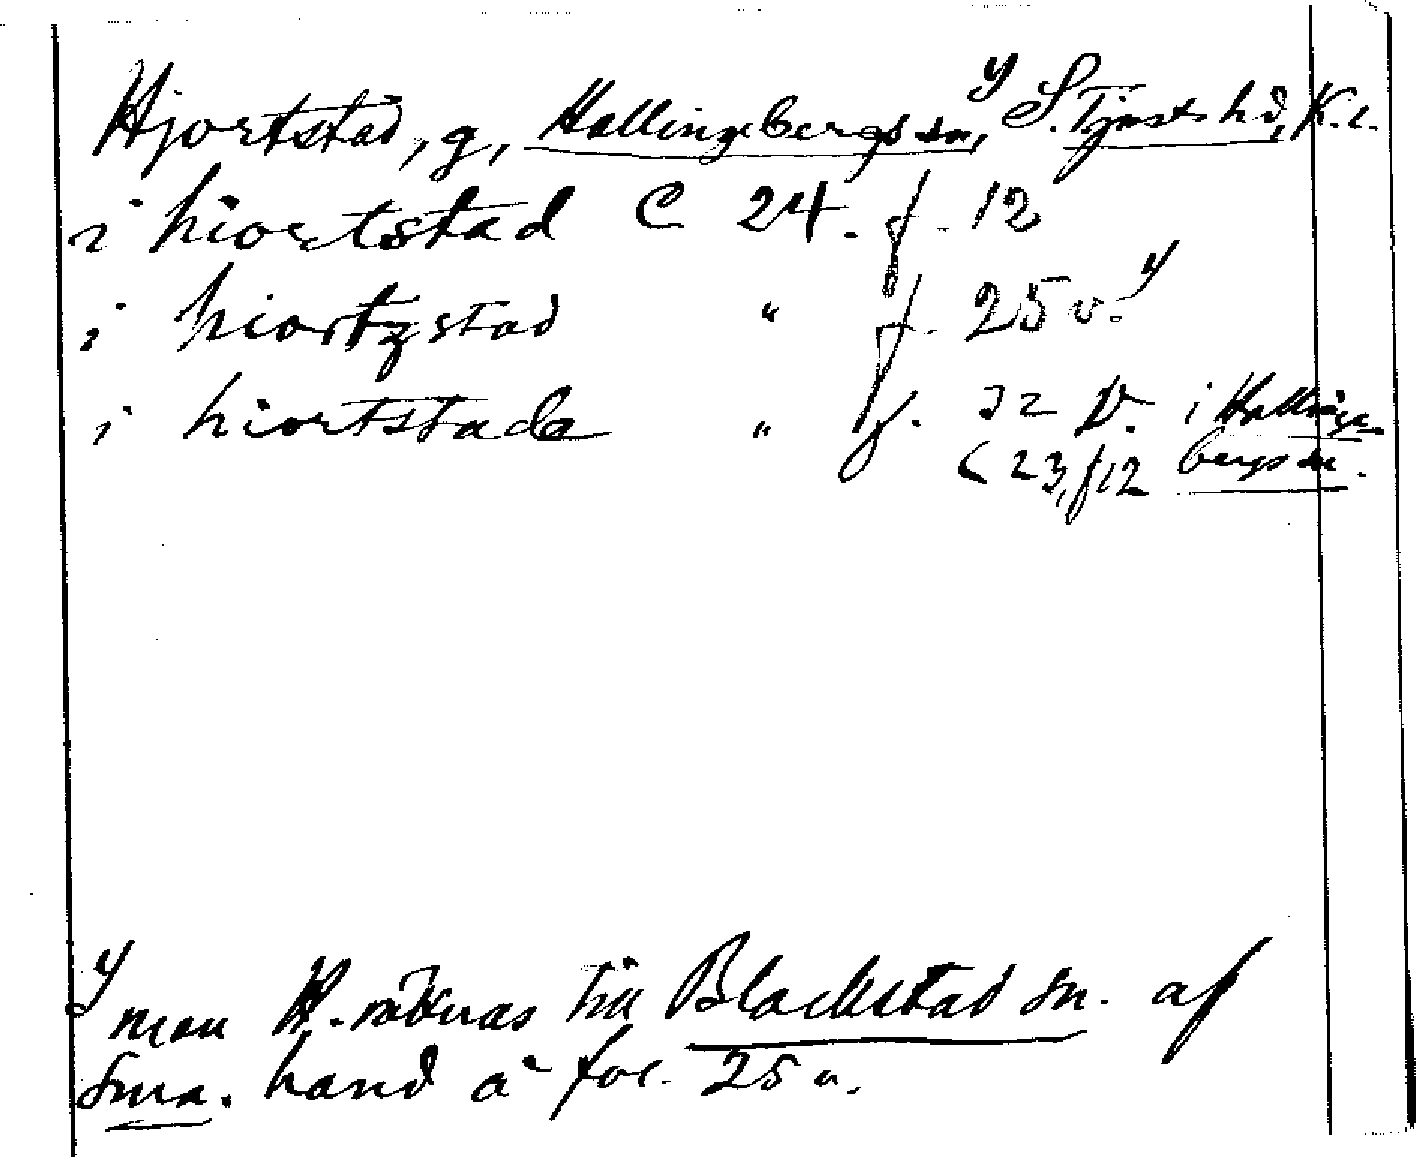 Hjortstad, g, Hallingebergs sn, y) S. Tjusts hd, K.l.
i hiortstad C 24. f. 12
i hiortzstad " f. 25 v. y)
i hiortstade " f. 32 v. i Hallinge-
C 23, f 12 bergs sn.
y) men H. räknas till Blackstad sn. af
Sma. hand å fol. 25 v.